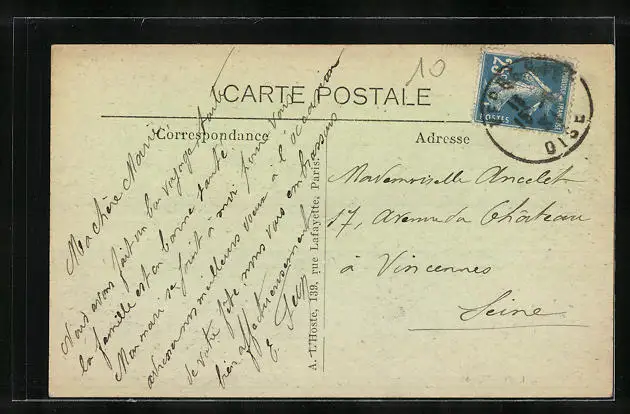 10
CARTE POSTALE
Correspondance
Adresse
25
POSTES
OISE
Ma chère Marie
Nous avons fait un bon voyage, toute
la famille est en bonne santé.
Mon mari se joint à moi pour vous
adresser nos meilleurs voeux à l'occasion
de votre fête, nous vous embrassons
bien affectueusement
A. L'Hoste, 139, rue Lafayette, Paris.
Mademoiselle Ancelet
17, Avenue du Château
à Vincennes
Seine